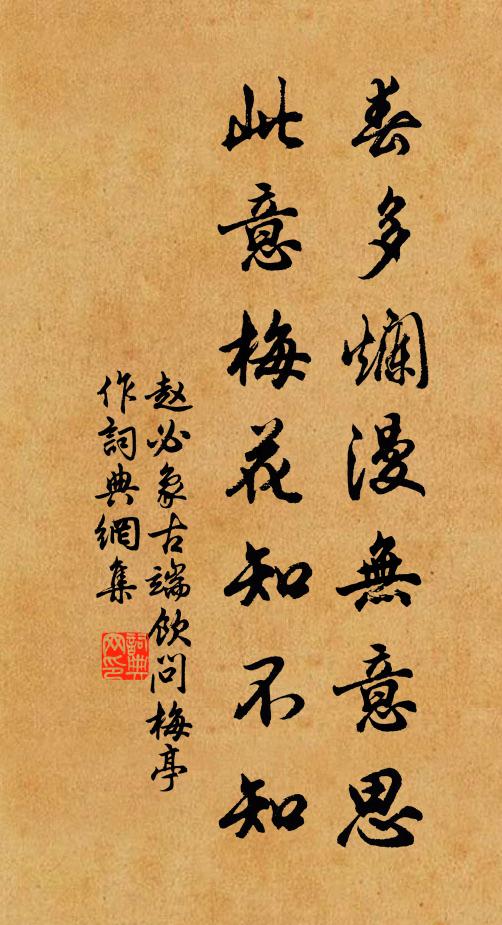 春多爛漫無意思
此意梅花知不知
赵必象古端飲问梅亭
作詞典網集
詞典網印